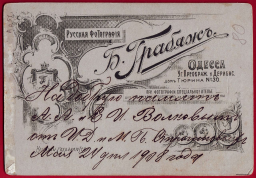 Русская Фотографія
Б. Грабяжъ.
Одесса
Уг. Преображ. и Дерибас.
домъ Гюрика №30.
На добрую память
А. Л. и В. И. Волковымъ
отъ И. Д. и М. П.
Мая 24 дня 1908 года